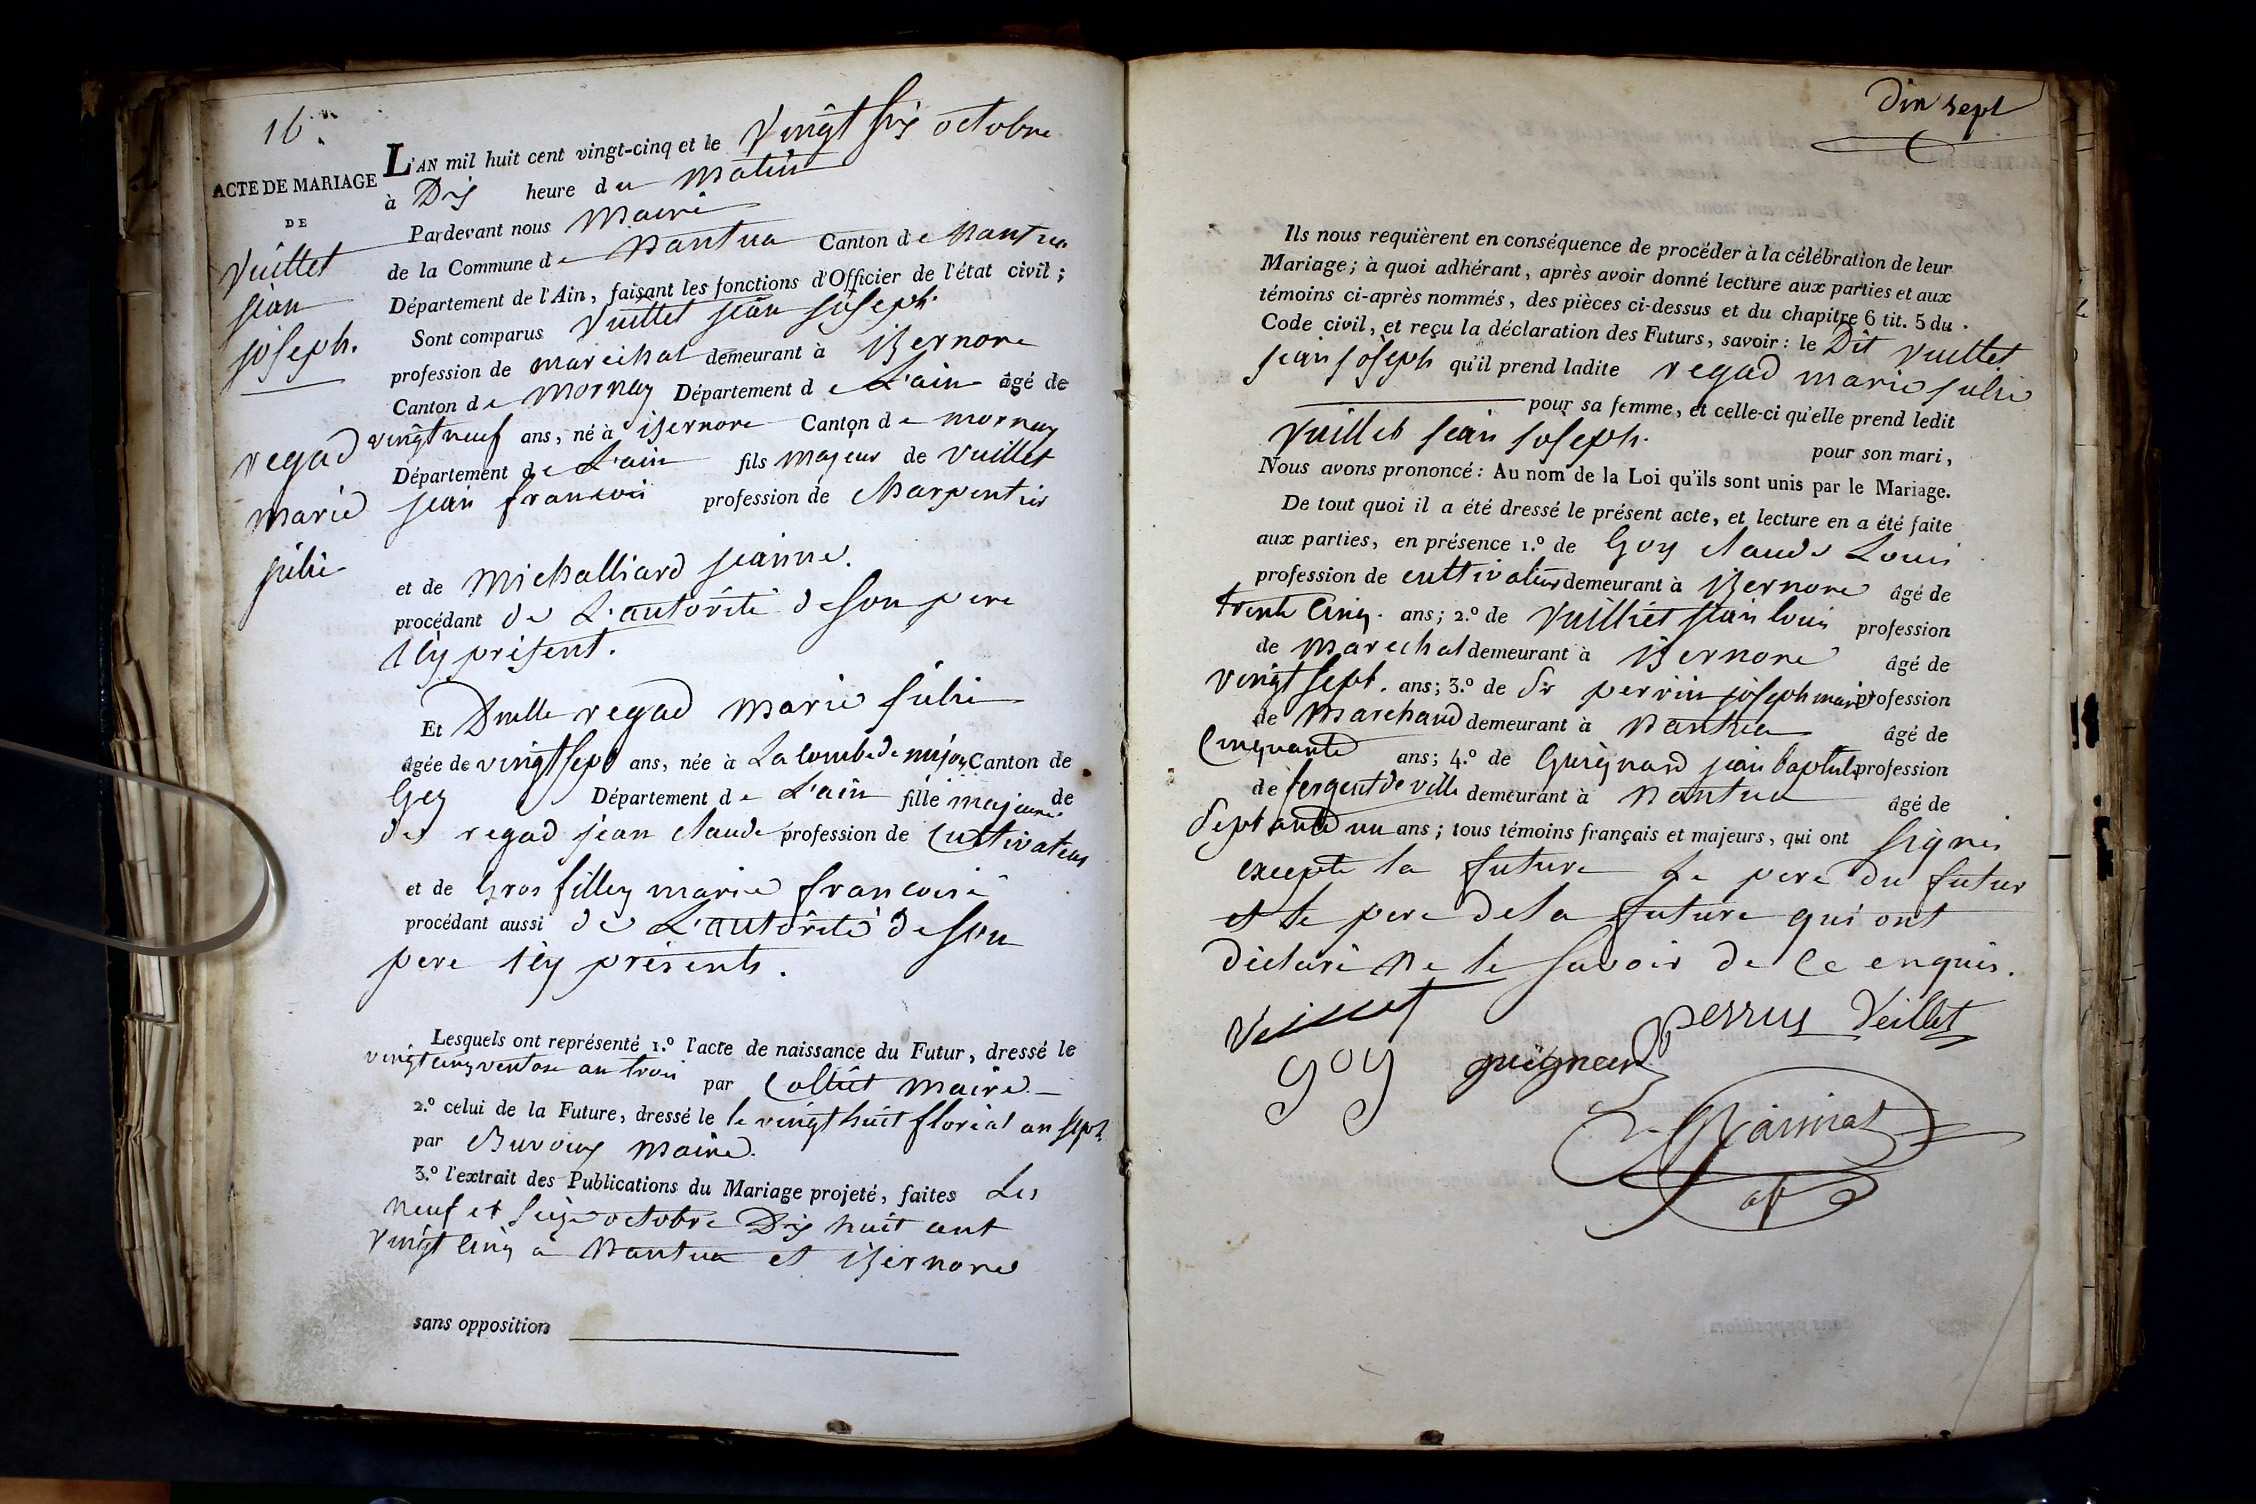 16e.
ACTE DE MARIAGE
DE
Vuillet
jean
joseph.
regad
marie
julie
L'AN mil huit cent vingt-cinq et le Vingt six octobre
à Dix heure du matin
Pardevant nous Maire
de la Commune de Nantua Canton de Nantua
Département de l'Ain, faisant les fonctions d'Officier de l'état civil;
Sont comparus Vuillet jean joseph.
profession de marechal demeurant à iZernore
Canton de Mornay Département de L'ain âgé de
vingt neuf ans, né à iZernore Canton de mornay
Département de L'ain fils majeur de vuillet
jean francois profession de Charpentier
et de Michalliard jeanne.
procédant de L'autorité de son pere
icy présent.
Et Dmlle regad marie julie
âgée de vingt sept ans, née à La combe de mijoux Canton de
Gex Département de L'ain fille majeure de
de regad jean claude profession de Cultivateur
et de Gros filley marie francoise
procédant aussi de L'autorité de son
pere icy présents.
Lesquels ont représenté 1.º l'acte de naissance du Futur, dressé le
vingt cinq ventose an trois par Collet Maire.
2.º celui de la Future, dressé le le vingt huit floréal an sept
par Buvoux maire.
3.º l'extrait des Publications du Mariage projeté, faites Les
Neuf et seize octobre Dix huit cent
vingt cinq à Nantua et iZernore
sans opposition
Dix sept
Ils nous requièrent en conséquence de procéder à la célébration de leur
Mariage; à quoi adhérant, après avoir donné lecture aux parties et aux
témoins ci-après nommés, des pièces ci-dessus et du chapitre 6 tit. 5 du
Code civil, et reçu la déclaration des Futurs, savoir: le Dit vuillet
jean joseph qu'il prend ladite regad marie julie
pour sa femme, et celle-ci qu'elle prend ledit
Vuillet jean joseph. pour son mari,
Nous avons prononcé: Au nom de la Loi qu'ils sont unis par le Mariage.
De tout quoi il a été dressé le présent acte, et lecture en a été faite
aux parties, en présence 1.º de Goy claude Louis
profession de cultivateur demeurant à iZernore âgé de
trente cinq. ans; 2.º de Vuilliet jean louis profession
de Marechal demeurant à iZernore âgé de
vingt sept. ans; 3.º de Sr perrin joseph marie profession
de Marchand demeurant à Nantua âgé de
Cinquante ans; 4.º de Guignard jean baptiste profession
de sergent de ville demeurant à Nantua âgé de
Septante un ans; tous témoins français et majeurs, qui ont signés
excepté la future Le pere du futur
et le pere de la future qui ont
déclaré Ne le savoir de Ce enquis.
Vuillet
perrin Veillet
goy guignard